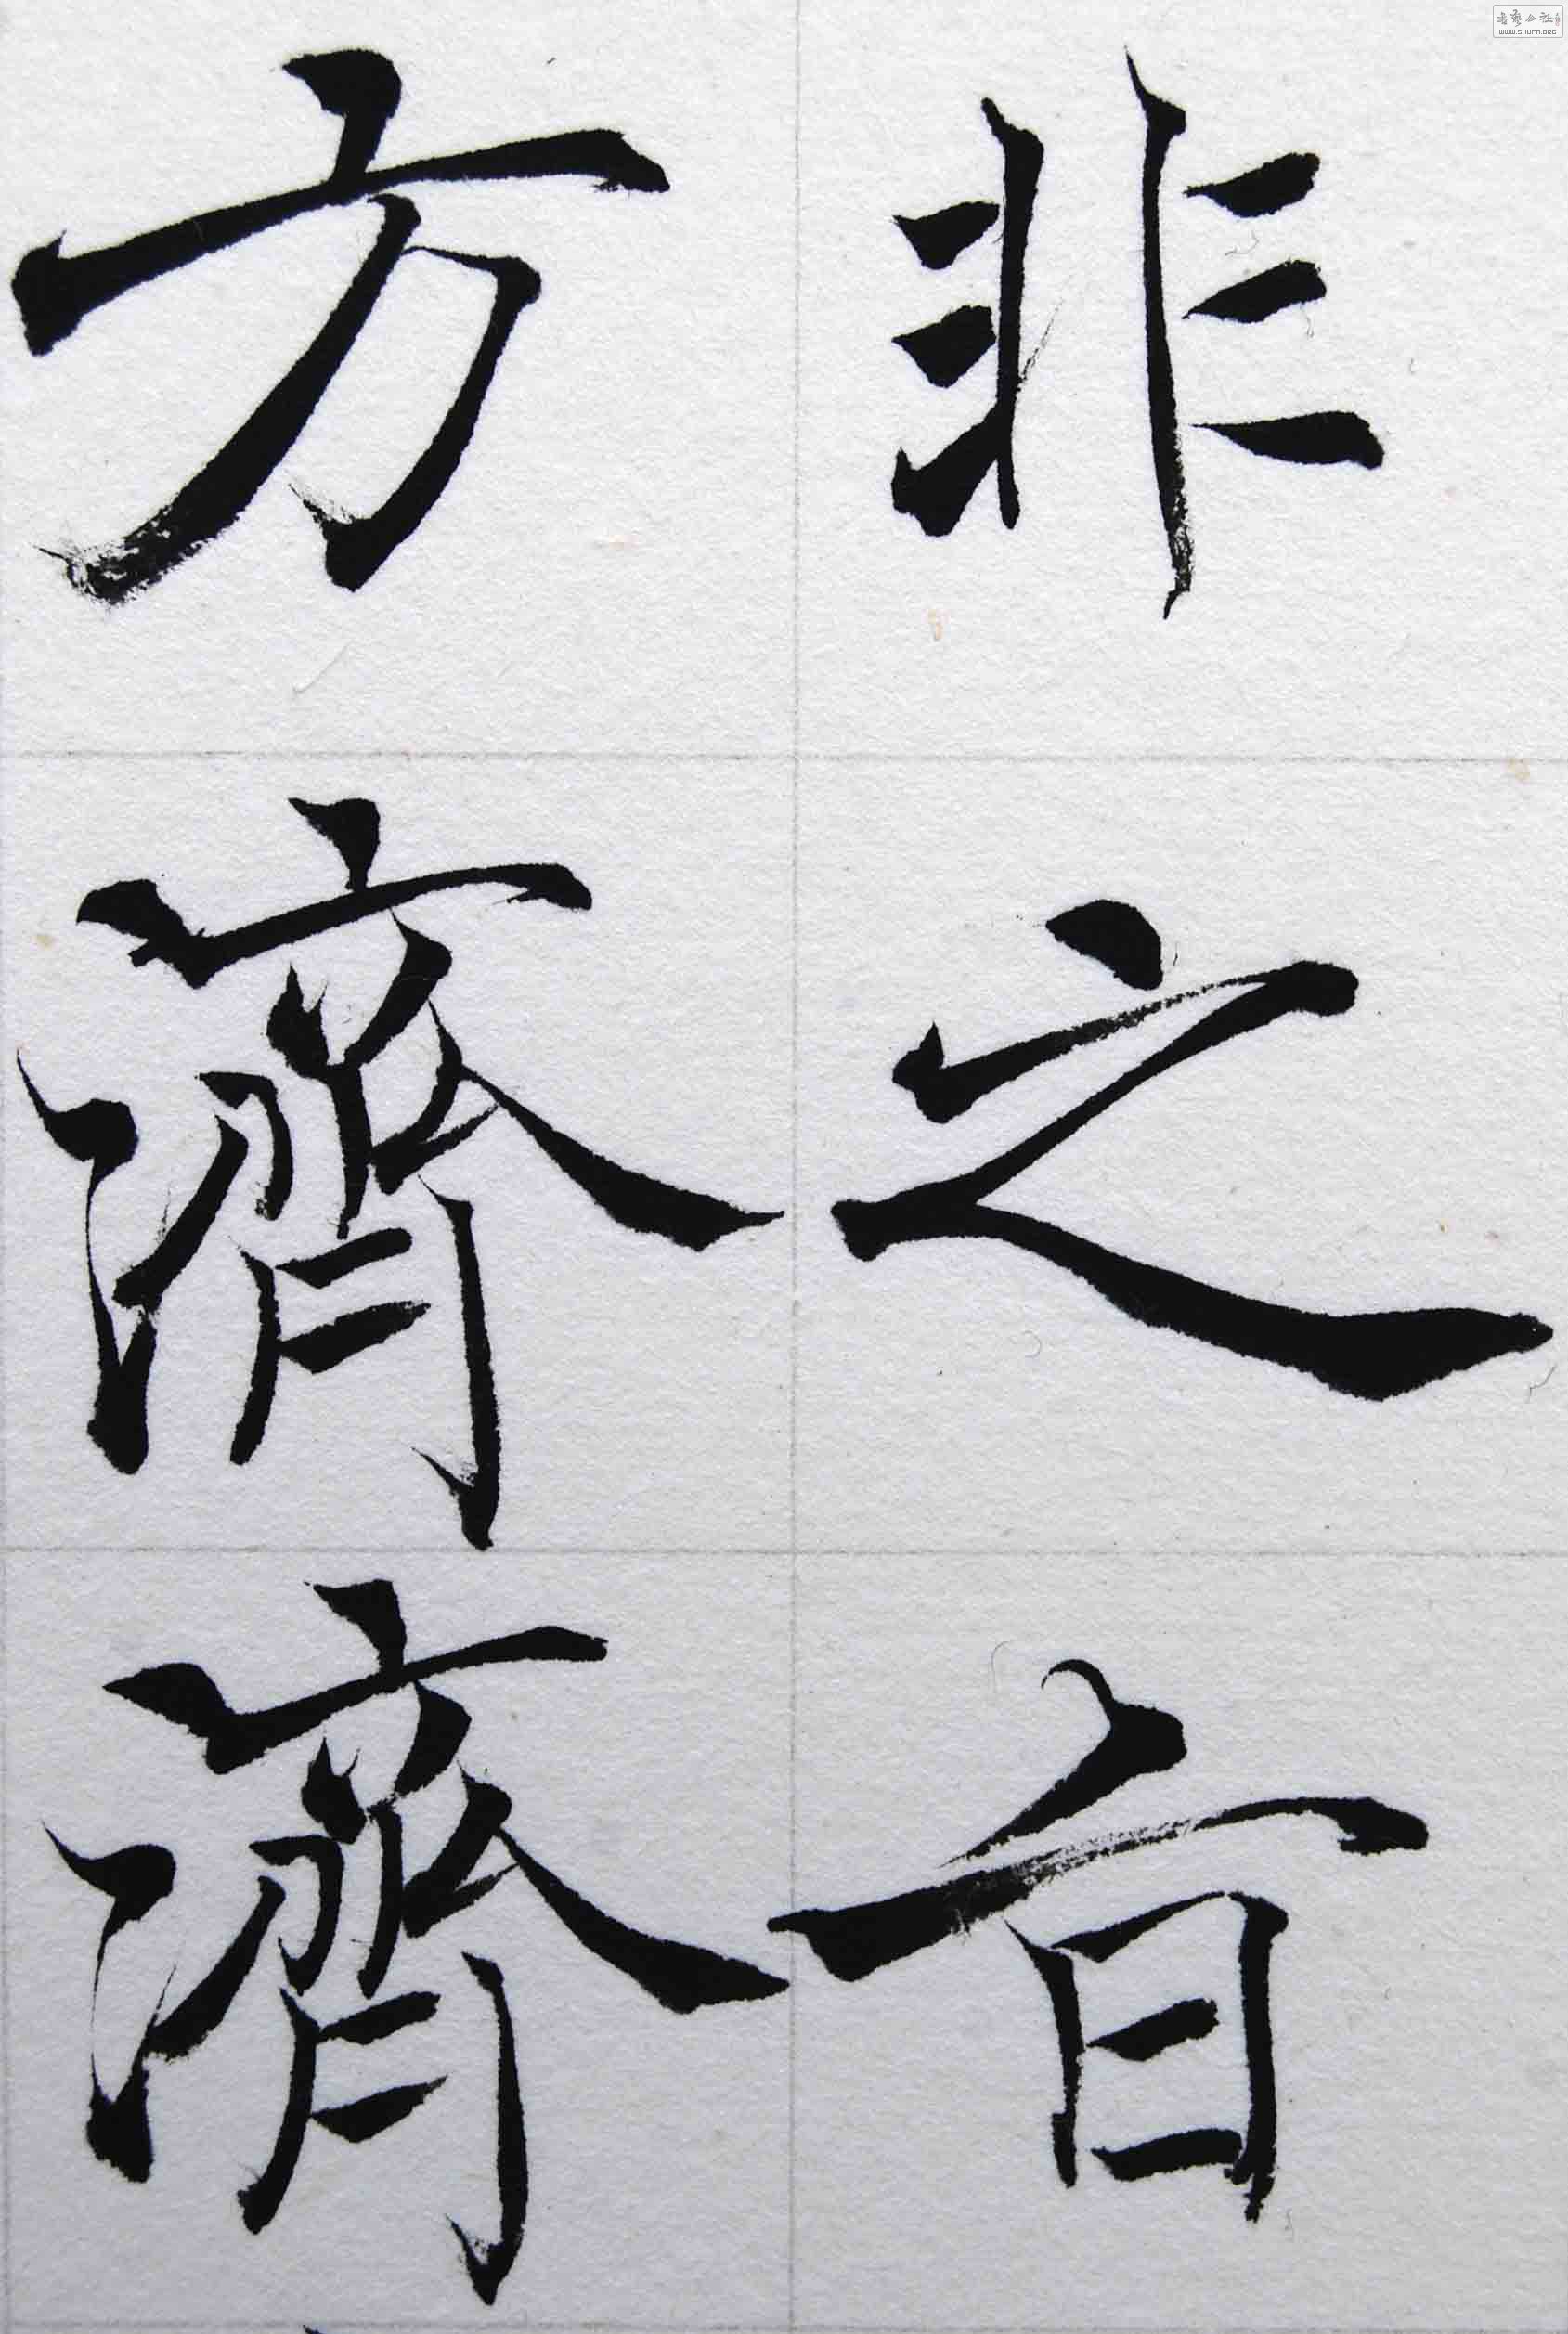 非之
方濟濟
书艺公社
WWW.SHUFA.ORG